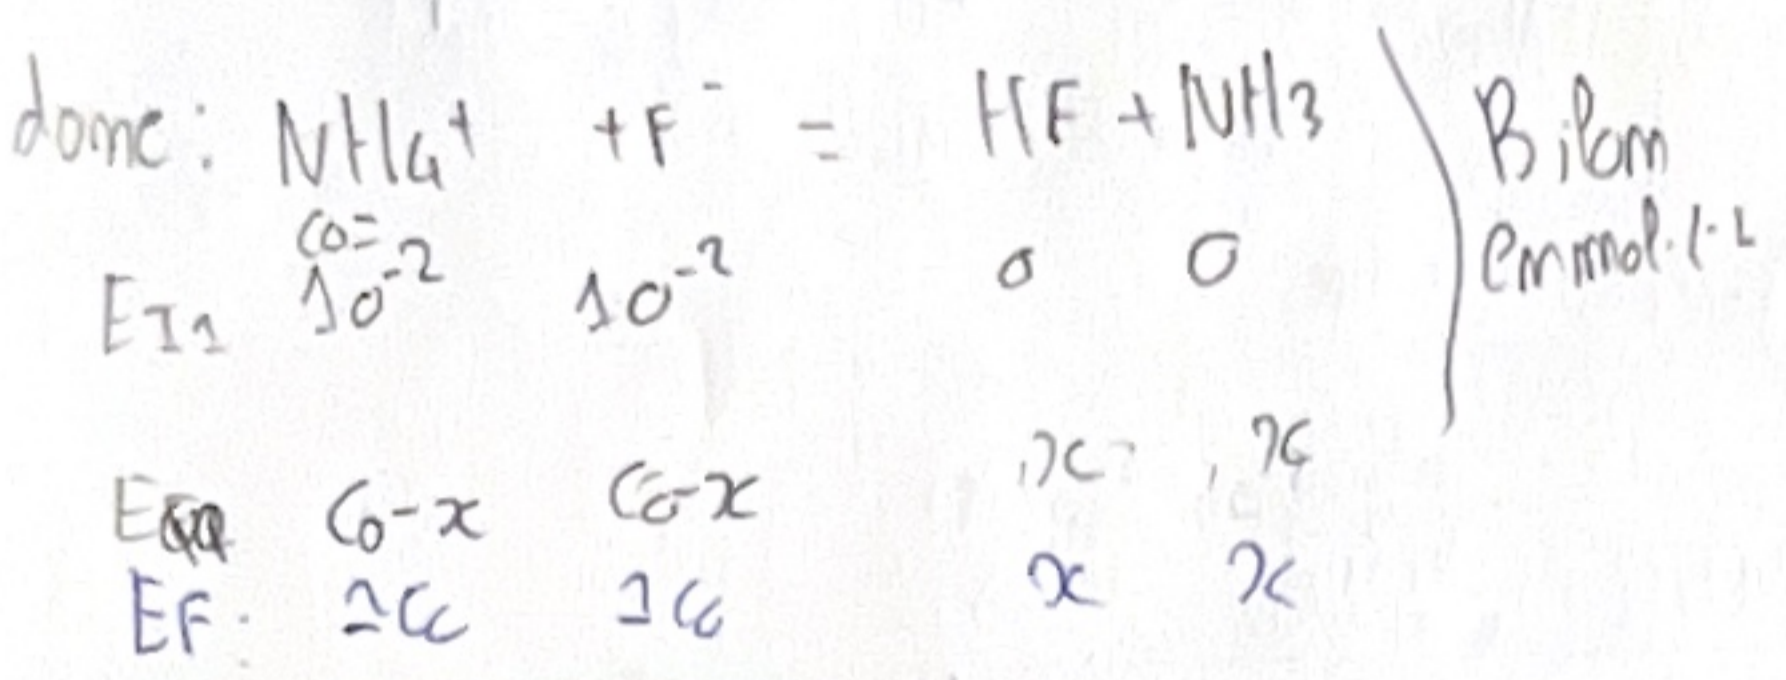 donc: NH4+ + F- = HF + NH3 Bilan
C0= en mol.L-1
EI1 10-2 10-2 0 0
x x
EEQ C0-x C0-x
EF. ≃C0 ≃C0 x x